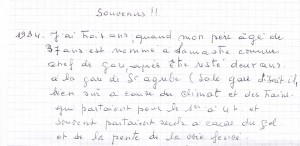 Souvenirs !!
1934. J'ai trois ans quand mon père âgé de
37 ans est nommé a Lamastre comme
chef de gare, après être resté deux ans
a la gare de St agrève (sale gare disait il,
bien sûr a cause du climat et des trains
qui partaient pour le 1er a 4 h et
souvent partaient seuls a cause du gel
et de la pente de la voie ferrée